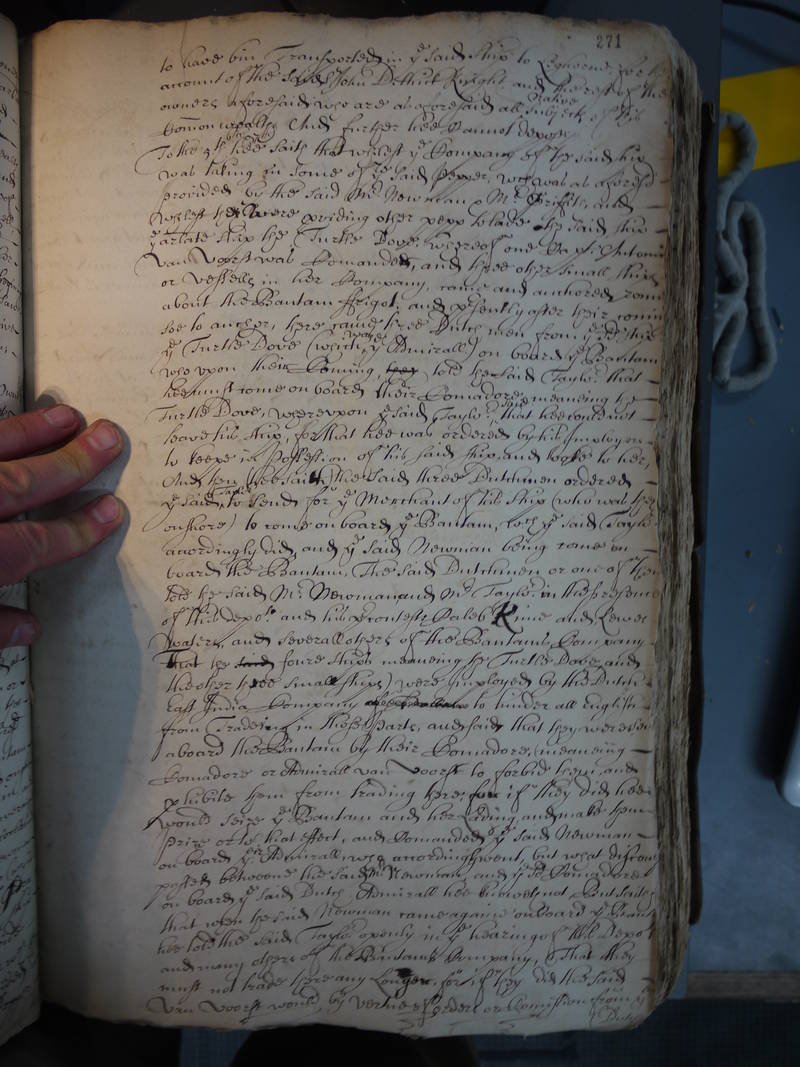 271
to have bin Transported in ye said ship to Legorne for the
account of the said John Dethick Knight and the rest of the
owners aforesaid who are as aforesaid all native Subjects of this
Common wealth And further hee cannot depose
To the 5th hee saith that whilest ye Company of the said ship
was taking in some of ye said Pepper, wch was as aforesd
provided by the said Mr Newman & Mr Griffith, and
whilest they were providing other pepp to lade the said ship
ye arlate ship the Turtle Dove, whereof one Capt Antonie
Van Voorst was Comander, and three other small ships
or vessells in her Company, came and anchored
about the Bantam ffrigot, and presently after their coming
soe to anchor, there came three Dutch men from ye sd ship
ye Turtle Dove (which was ye Admirall) on board ye Bantam
who upon their Coming, they told the said Taylor that
hee must come on board their Comadore meaning the
Turtle Dove, whereupon ye said Taylor said that hee could not
leave his ship, for that hee was ordered by his imployers
to keepe in possession of his said ship and looke to her,
And then (hee saith) the said three Dutchmen ordered
ye said Taylor to send for ye Merchant of his ship (who was then
on shore) to come on board ye Bantam, wch ye said Taylor
accordingly did, and ye said Newman being come on
board the Bantam, The said Dutchmen or one of them
told the said Mr Newman and Mr Taylor in the presence
of this depot and his precontests Caleb Kime and Lewes
Waters, and severall others of the Bantams Company
That the said foure ships meaneing the Turtle Dove and
the other three small ships) were imployed by the Dutch
East India Company to hinder all English
from Tradeing in those Parts, and said that they were sent
aboard the Bantam by their Comadore, (meaneing
Comadore or Admirall van Voorst to forbid them and
phibite them from trading there, for if they did hee
would seize ye Bantam and her Lading and make them
Prize or to that effect, and Comanded ye said Newman
on board ye Admirall who accordingly went, but what discourse
passed betweene the said Mr Newman, and ye sd Comadore
on board ye said Dutch Admirall hee knowes not But saith
that when the said Newman came againe on board ye Bantam
hee told the said Taylor openly in ye hearing of this Depot
and many others of the Bantams Company, That they
must not trade there any Longer, for if they did the said
Van Voorst would, by vertue of order or Comission from ye
Dutch